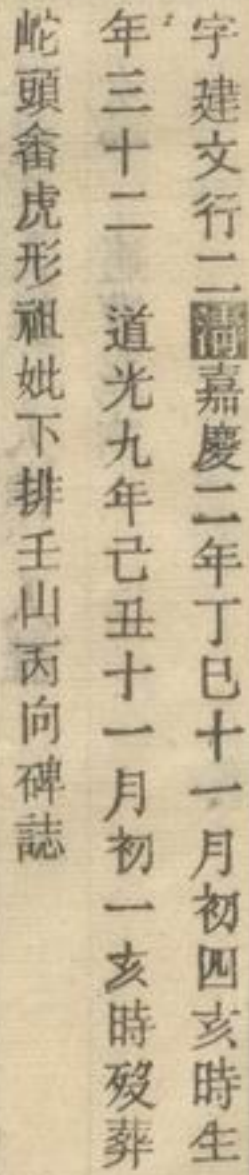 字建文行二清嘉慶二年丁巳十一月初四亥時生
年三十二 道光九年己丑十一月初一亥時歿葬
岮頭畬虎形祖妣下排壬山丙向碑誌